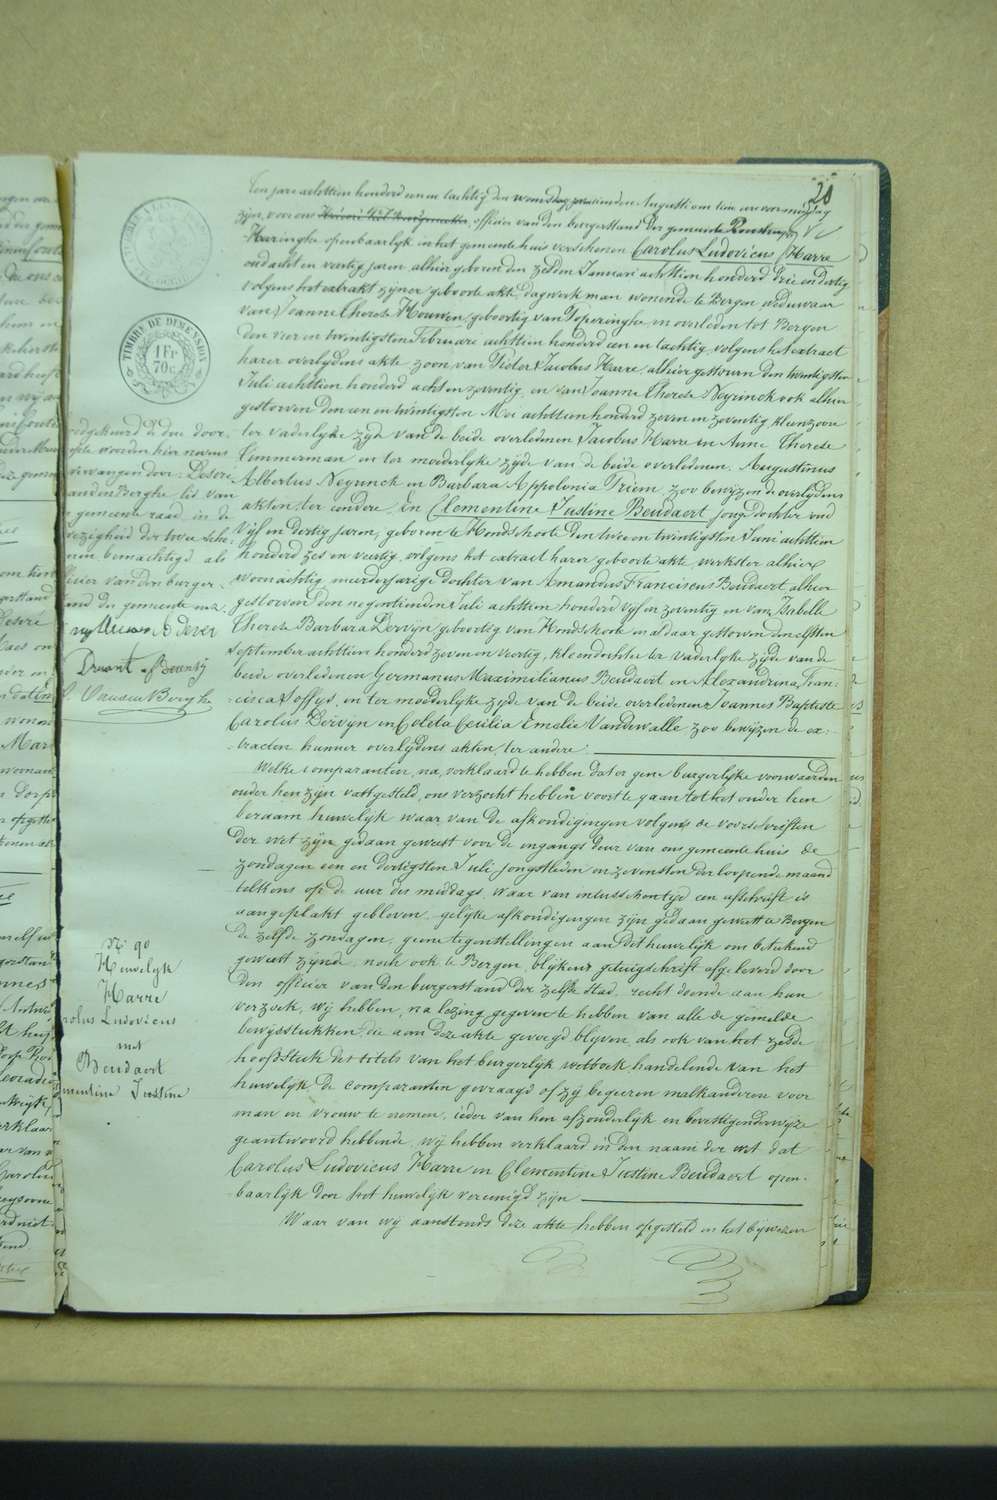 20
Ten jare achttien honderd een en tachtig den Augusti om tien ure voormiddag
zijn, voor ons officier van den burgerstand der gemeente
Haringhe openbaarlijk in het gemeentehuis verschenen Carolus Ludovicus Harre
oud acht en veertig jaren, alhier geboren den zesden Januari achttien honderd drie en dertig
volgens het extrakt zijner geboorte akte, dagwerkman wonende te Bergen weduwaar
van Joanne Therese Houwen, geboortig van Poperinghe en overleden tot Bergen
den vier en twintigsten Februari achttien honderd een en tachtig, volgens het extract
harer overlijdens akte zoon van Pieter Jacobus Harre, alhier gestorven den twintigsten
Juli achttien honderd acht en zeventig, en van Joanne Therese Neyrinck ook alhier
gestorven den een en twintigsten Mei achttien honderd zeven en zeventig kleinzoon
ter vaderlyke zyde van de beide overledenen Jacobus Harre en Anne Therese
Timmerman en ter moederlyke zijde van de beide overledenen, Augustinus
Albertus Neyrinck en Barbara Appolonia Priem zoo bewyzen de overlydens
akten ter eendere. En Clementine Justine Beudaert jonge dochter oud
Vijf en dertig jaren, geboren te Hondschoote den twee en twintigsten Juni achttien
honderd zes en veertig, volgens het extract harer geboorte akte, werkster alhier
woonachtig meerderjarige dochter van Amandus Franciscus Beudaert alhier
gestorven den negentienden Juli achttien honderd vijf en zeventig en van Isabelle
Therese Barbara Dervyn geboortig van Hondschoote en aldaar gestorven den elfsten
September achttien honderd zeven en veertig, kleendochter ter vaderlyke zyde van de
beide overledenen Germanus Maximilianus Beudaert en Alexandrina Fran-
cisca Stoffijs, en ter moederlyke zyde van de beide overledenen Joannes Baptiste
Carolus Dervyn en Coleta Cecilia Emelie Vandewalle zoo bewijzen de ex-
tracten hunner overlydens akten, ter andere.
Welke comparanten, na, verklaard te hebben dat er gene burgerlyke voorwaarden
onder hen zijn vastgesteld, ons verzocht hebben voort te gaan tot het onder hen
beraam huwelijk waar van de afkondigingen volgens de voorschriften
der wet zijn gedaan geweest voor de ingangs deur van ons gemeente huis de
zondagen een en dertigsten Juli jongstleden en zevensten der loopende maand
telkens op de uur des middags, waar van intusschentyd een afschrift is
aangeplakt gebleven, gelijke afkondigingen zijn gedaan geweest te Bergen
de zelfde zondagen, geene tegenstellingen aan dit huwelijk ons beteekend
geweest zijnde, noch ook te Bergen, blijkens getuigschrift afgeleverd door
den officier van den burgerstand der zelfde stad, recht doende aan hun
verzoek, wij hebben, na lezing gegeven te hebben van alle de gemelde
bewijsstukken die aan deze akte gevoegd blijven als ook van het zesde
hoofdstuk des titels van het burgerlijk wetboek handelende van het
huwelijk de comparanten gevraagd of zij begeeren malkanderen voor
man en vrouw te nemen, ieder van hen afzonderlijk en bevestigenderwijze
geantwoord hebbende, wij hebben verklaard in den naam der wet dat
Carolus Ludovicus Harre en Clementine Justine Beudaert open-
baarlijk door het huwelijk vereenigd zijn
Waar van wij aanstonds deze akte hebben opgesteld en het bijwezen
TIMBRE DE DIMENSION
1 Fr
70 c.
goedgekeurd de due door-
woorden hier nevens
vervangen door: Desire
vanden Berghe lid van
gemeente raad, in de
der twee sche-
nen bemachtigd als
officier van den burger
stand der gemeente
Druant
Vanden Berghe
No 90
Huwelijk
Harre
rolus Ludovicus
met
Beudaert
mentine Justine